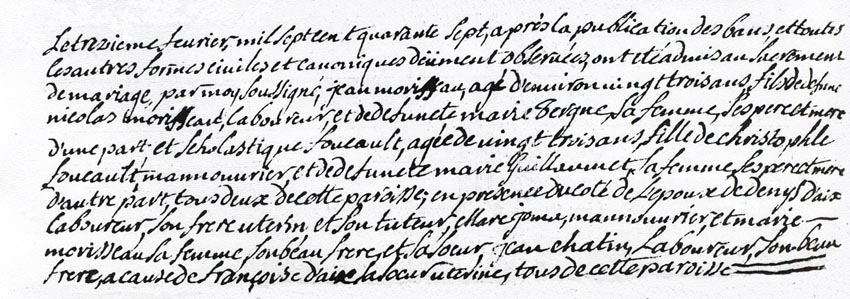 Le trezieme feurier, mil sept cent quarante sept, après la publication des bans, et toutes
les autres formes civiles et canoniques deüment observées, ont eté admis au Sacrement
de mariage, par moy Soussigné, jean morisseau, agé d'environ vingt trois ans, fils de defunt
nicolas morisseau, laboureur, et de defuncte marie Vergne, sa femme, Ses pere et mere
d'une part et Scholastique foucault, agée de vingt trois ans, fille de christophle
foucault, mannouvrier, et de defuncte marie Guillaumet, sa femme, Ses pere et mere
d'autre part, tous deux de cette paroisse; en présence du coté de L'epoux de denys daix
laboureur, Son frere uterin et Son tuteur, et Marc joma, mannouvrier, et marie
morisseau sa femme Son beau frere, et Sa Soeur, jean chatin, Laboureur, Son beau
frere, a cause de françoise daix sa soeur uterine, tous de cette paroisse